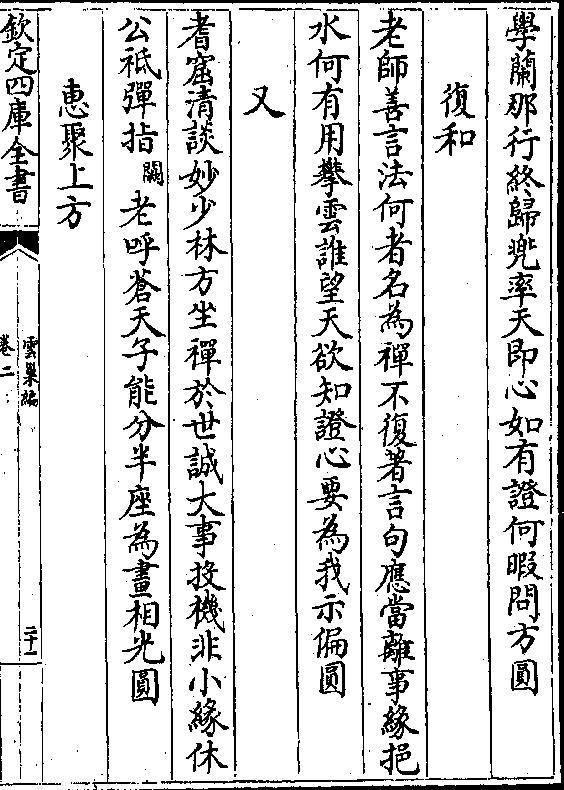 學蘭那行終歸兠率天即心如有證何暇問方圓
復和
老師善言法何者名為禪不復著言句應當離事緣挹
水何有用攀雲誰望天欲知證心要為我示偏圓
又
耆窟清談妙少林方坐禪於世誠大事投機非小緣休
公祗彈指闕老呼蒼天子能分半座為畫相光圓
惠聚上方
欽定四庫全書
雲巢編
卷二
二十一